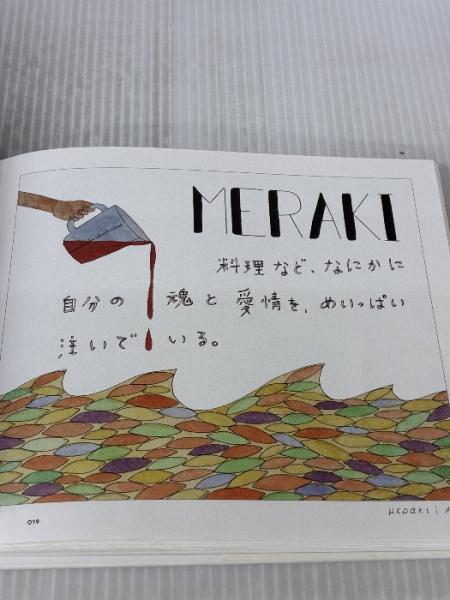 MERAKI
料理など、なにかに
自分の魂と愛情を、めいっぱい
注いでいる。
019
MERAKI